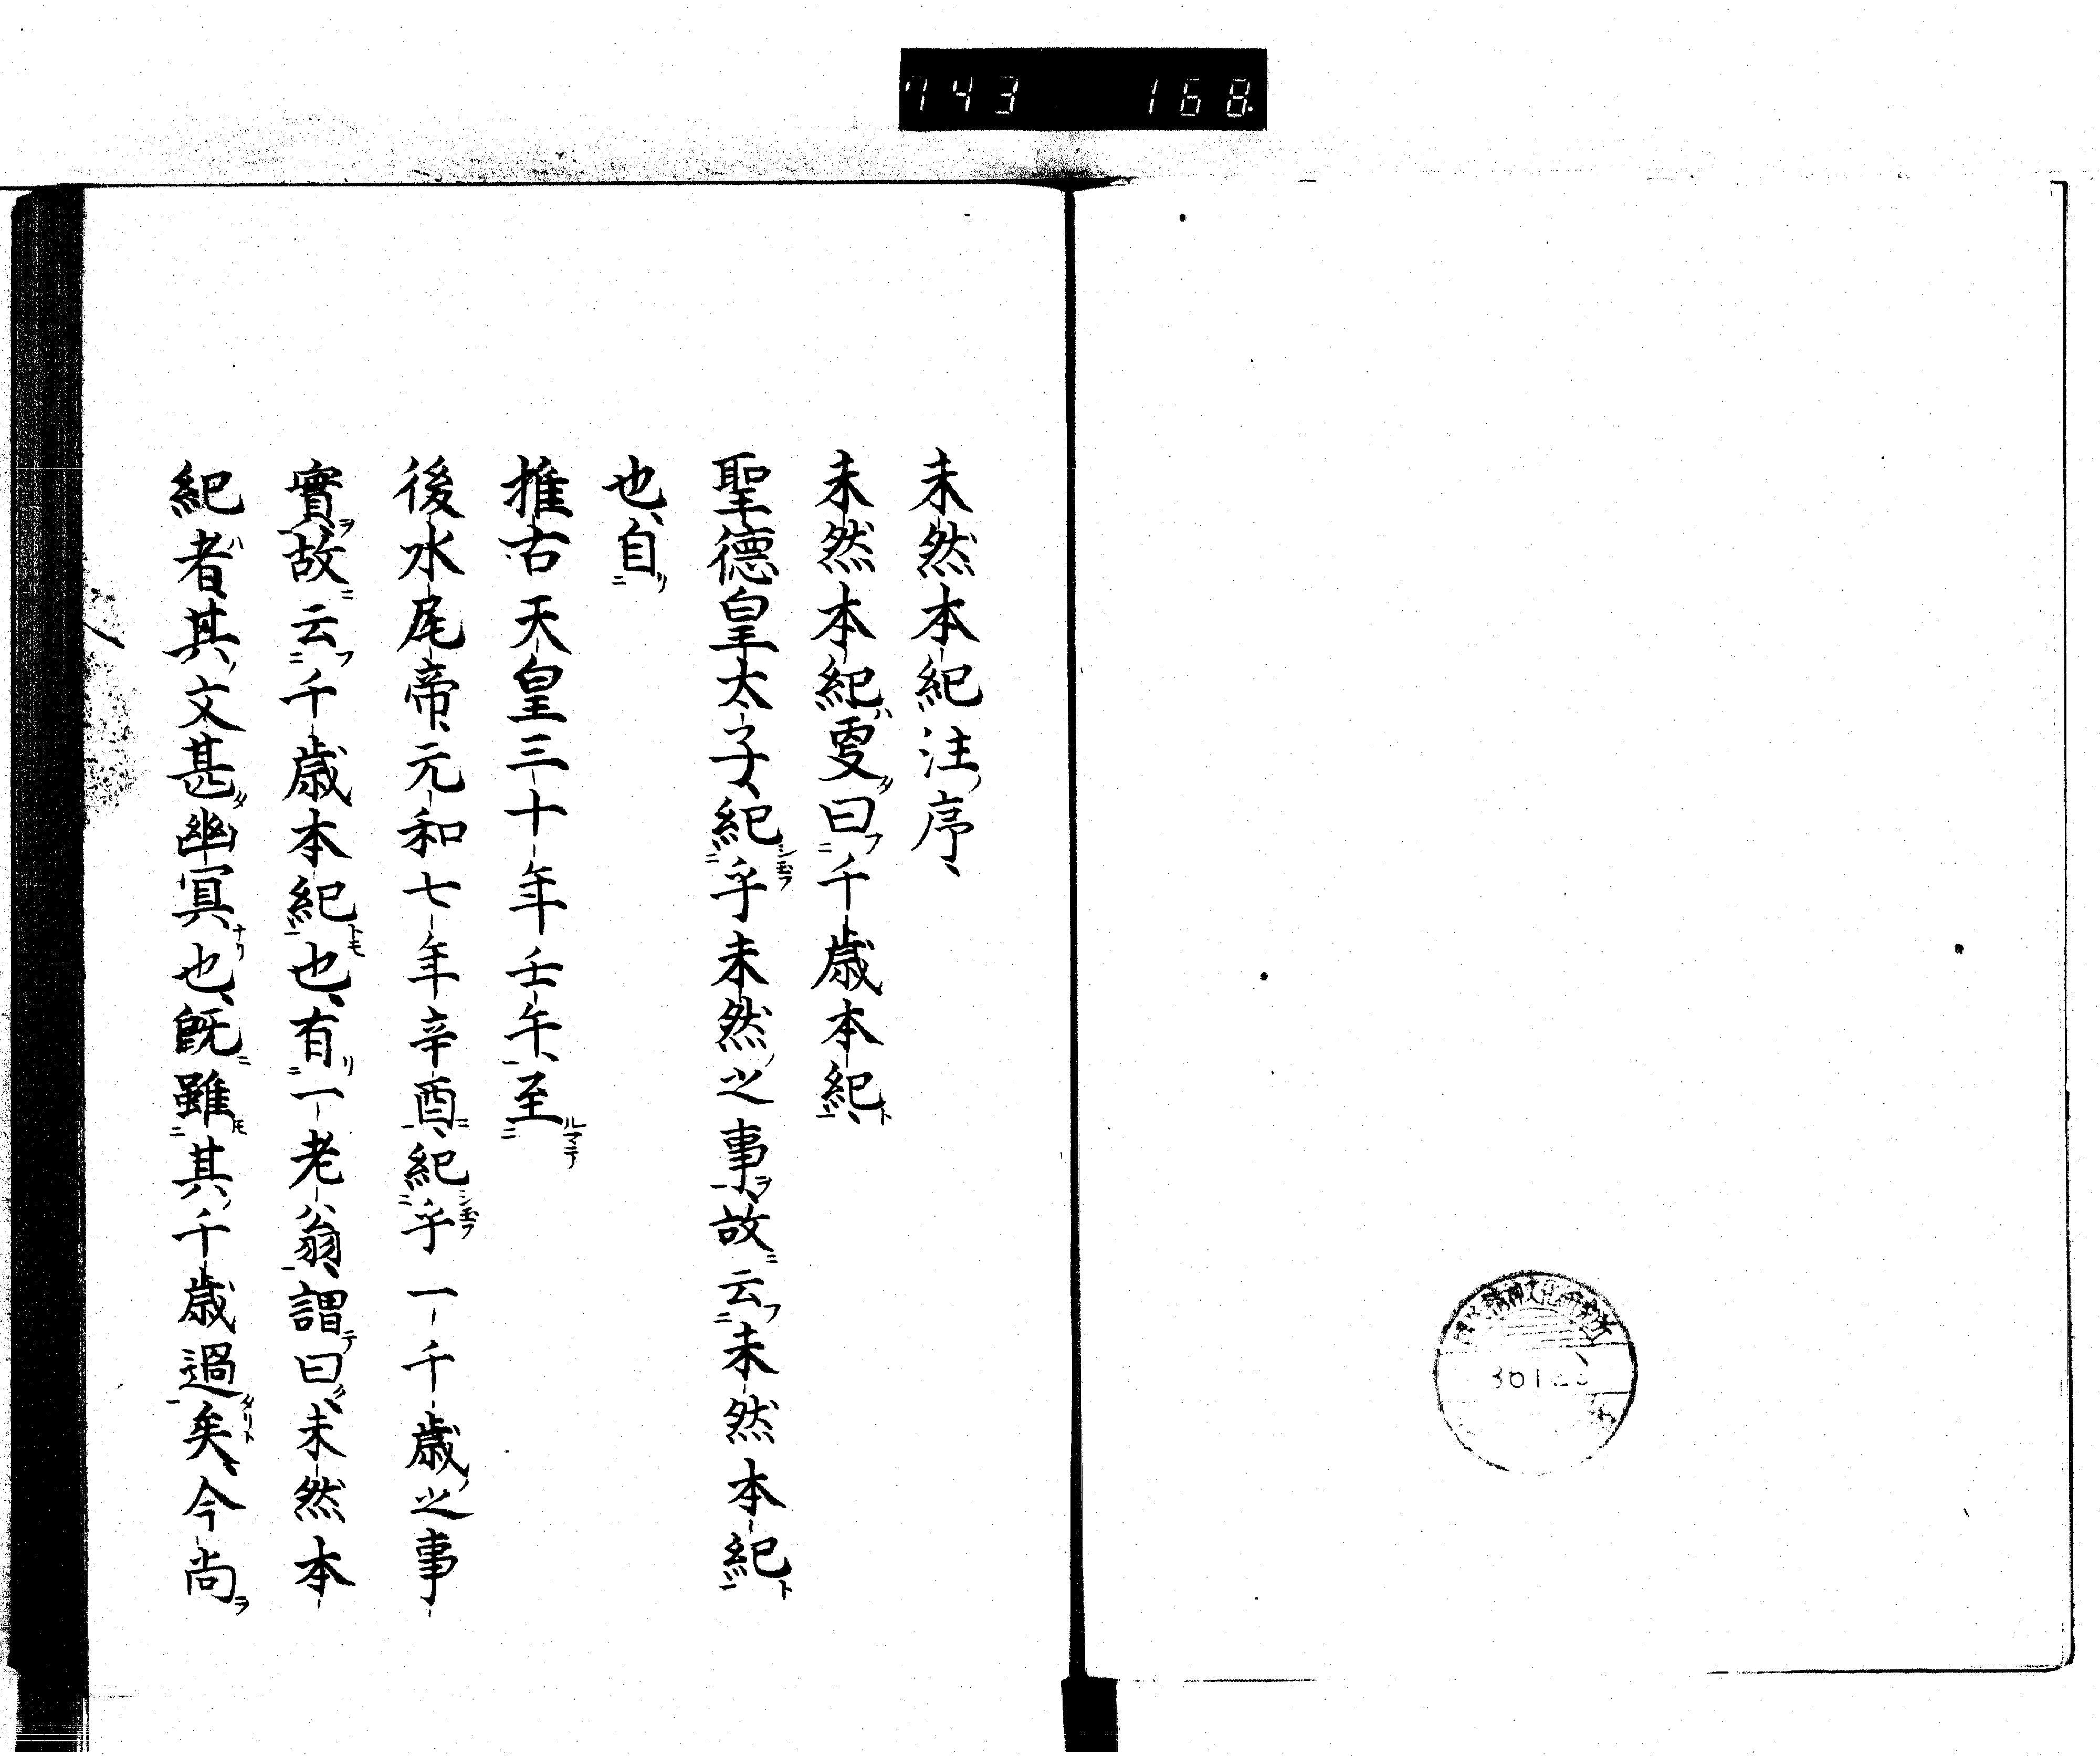 743 168
未然本紀注序
未然本紀又曰千歳本紀
聖徳皇太子紀乎未然之事故云未然本紀
也自
推古天皇三十年壬午至
後水尾帝元和七年辛酉紀乎一千歳之事
實故云千歳本紀也有一老翁謂曰未然本
紀者其文甚幽冥也既雖其千歳過矣今尚